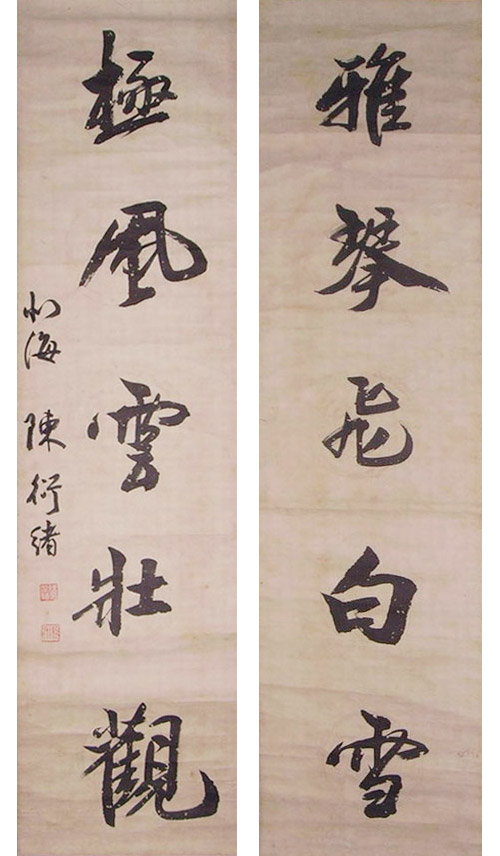 雅琴飛白雪
極風雲壯觀
北海 陳衍緒